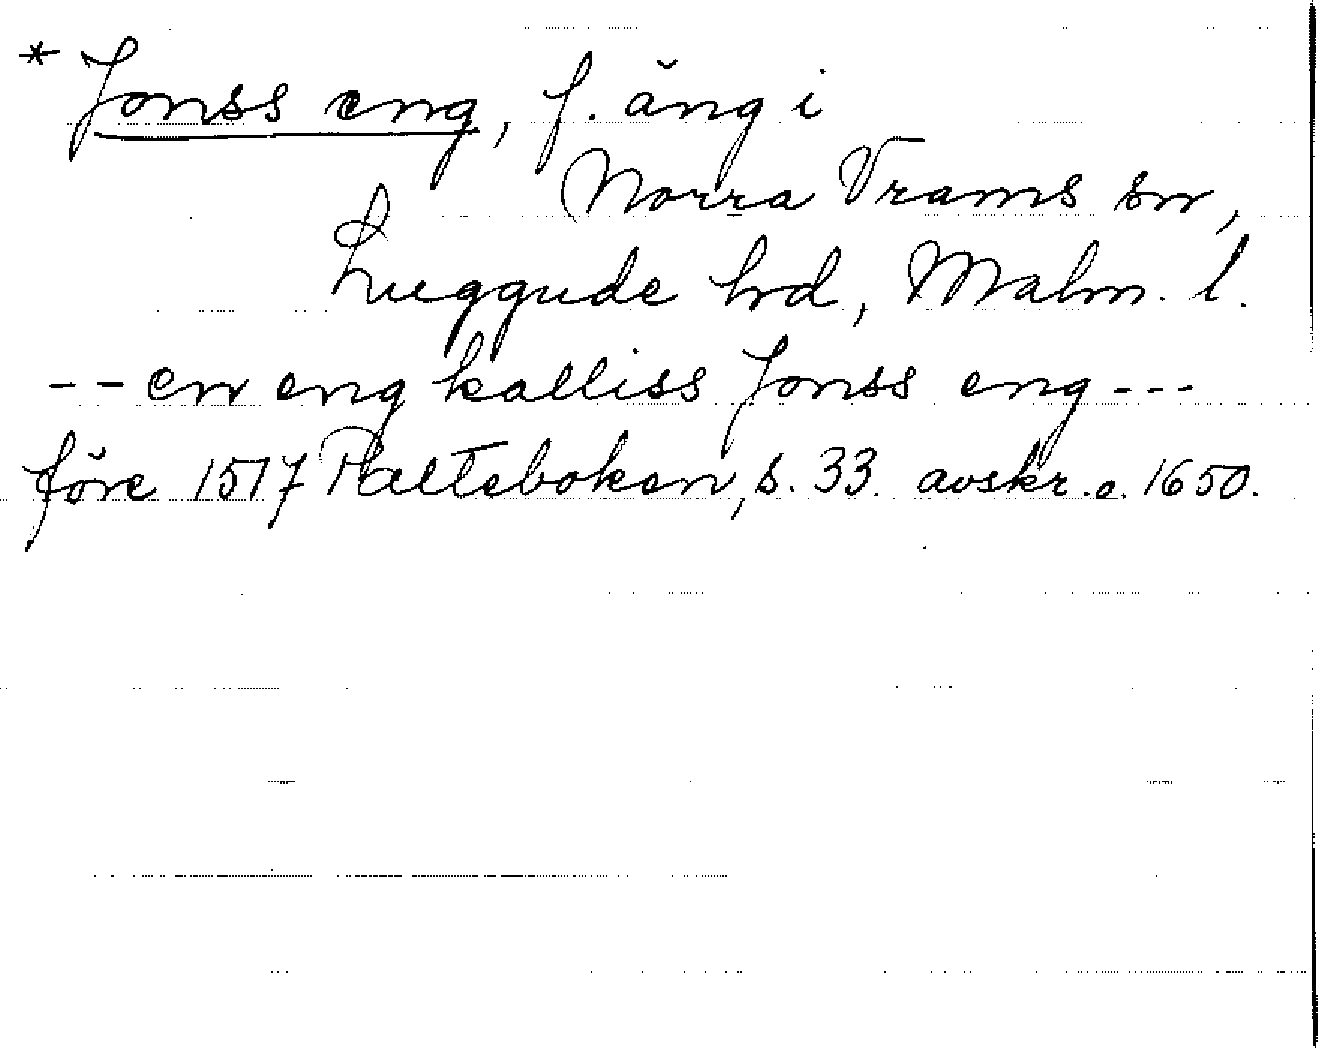 * Jonss eng, f. äng i
Norra Vrams sn,
Luggude hd, Malm. l.
-- en eng kalliss Jonss eng ---
före 1517 Palteboken, s. 33. avskr. o. 1650.